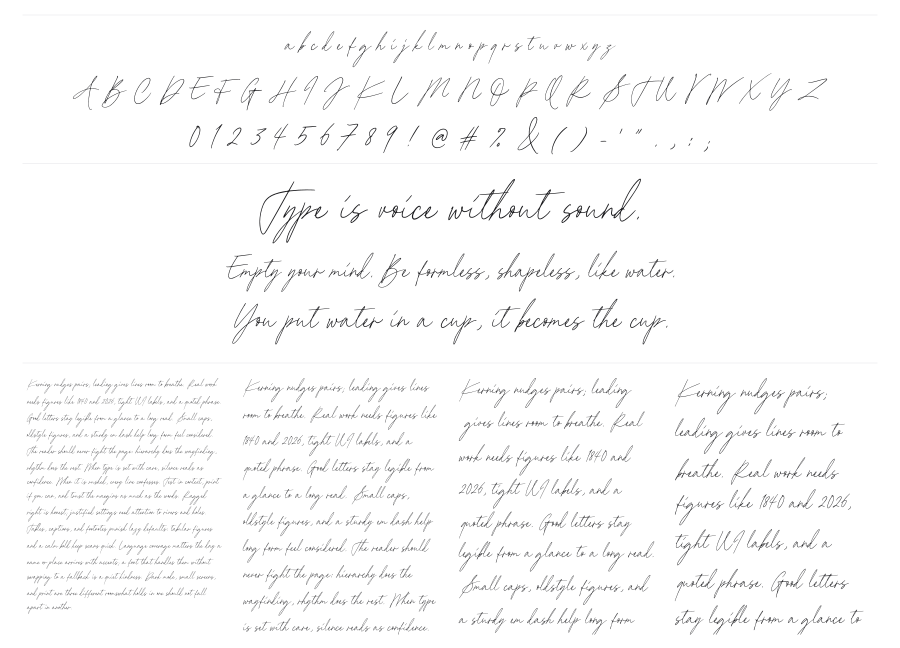 a b c d e f g h i j k l m n o p q r s t u v w x y z
A B C D E F G H I J K L M N O P Q R S T U V W X Y Z
0 1 2 3 4 5 6 7 8 9 ! @ # % & ( ) - ' " . , : ;
Type is voice without sound.
Empty your mind. Be formless, shapeless, like water.
You put water in a cup, it becomes the cup.
Kerning nudges pairs; leading gives lines room to breathe. Real work
needs figures like 1840 and 2026, tight UI labels, and a quoted phrase.
Good letters stay legible from a glance to a long read. Small caps,
oldstyle figures, and a sturdy em dash help long form feel considered.
The reader should never fight the page: hierarchy does the wayfinding,
rhythm does the rest. When type is set with care, silence reads as
confidence. When it is rushed, every line confesses. Test in context, print
if you can, and trust the margins as much as the words. Ragged
right is honest; justified settings need attention to rivers and holes.
Tables, captions, and footnotes punish lazy defaults: tabular figures
and a calm bold keep scans quick. Language coverage matters the day a
name or place arrives with accents; a font that handles them without
swapping to a fallback is a quiet kindness. Dark mode, small screens,
and print are three different rooms
apart in another.
Kerning nudges pairs; leading gives lines
room to breathe. Real work needs figures like
1840 and 2026, tight UI labels, and a
quoted phrase. Good letters stay legible from
a glance to a long read. Small caps,
oldstyle figures, and a sturdy em dash help
long form feel considered. The reader should
never fight the page: hierarchy does the
wayfinding, rhythm does the rest. When type
is set with care, silence reads as confidence.
Kerning nudges pairs; leading
gives lines room to breathe. Real
work needs figures like 1840 and
2026, tight UI labels, and a
quoted phrase. Good letters stay
legible from a glance to a long read.
Small caps, oldstyle figures, and
a sturdy em dash help long form
Kerning nudges pairs;
leading gives lines room to
breathe. Real work needs
figures like 1840 and 2026,
tight UI labels, and a
quoted phrase. Good letters
stay legible from a glance to